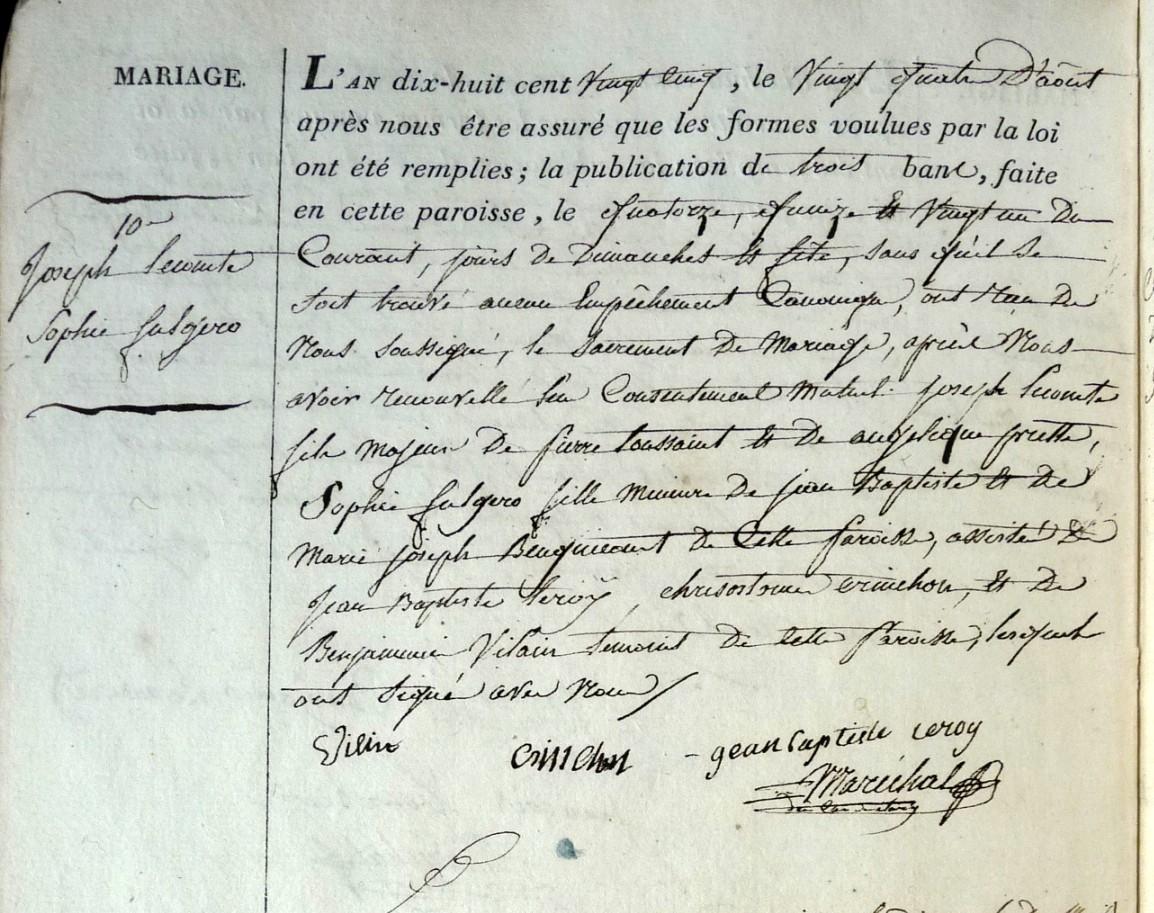 MARIAGE.
L'AN dix-huit cent Vingt Cinq, le Vingt quatre D'août
après nous être assuré que les formes voulues par la loi
ont été remplies; la publication de trois banc, faite
en cette paroisse, le quatorze, quinze et Vingt un du
Courant, jours de Dimanches et fête, sans qu'il se
soit trouvé aucun Empêchement Canonique, ont reçu de
Nous soussigné, le Sacrement de Mariage, après Nous
avoir renouvellé leur Consentement Mutuel. joseph Lecomte
fils majeur de pierre toussaint et de angelique
Sophie fulgero fille Mineure De jean Baptiste et De
Marie joseph De Cette Paroisse, assisté de
Jean Baptiste leroÿ, chrisostome crinchon, et de
Benjamin Vilain temoins de cette Paroisse, lesquels
ont signé avec Nous
10e
Joseph Lecomte
Sophie fulgero
crinchon - jean baptiste leroy
Maréchal